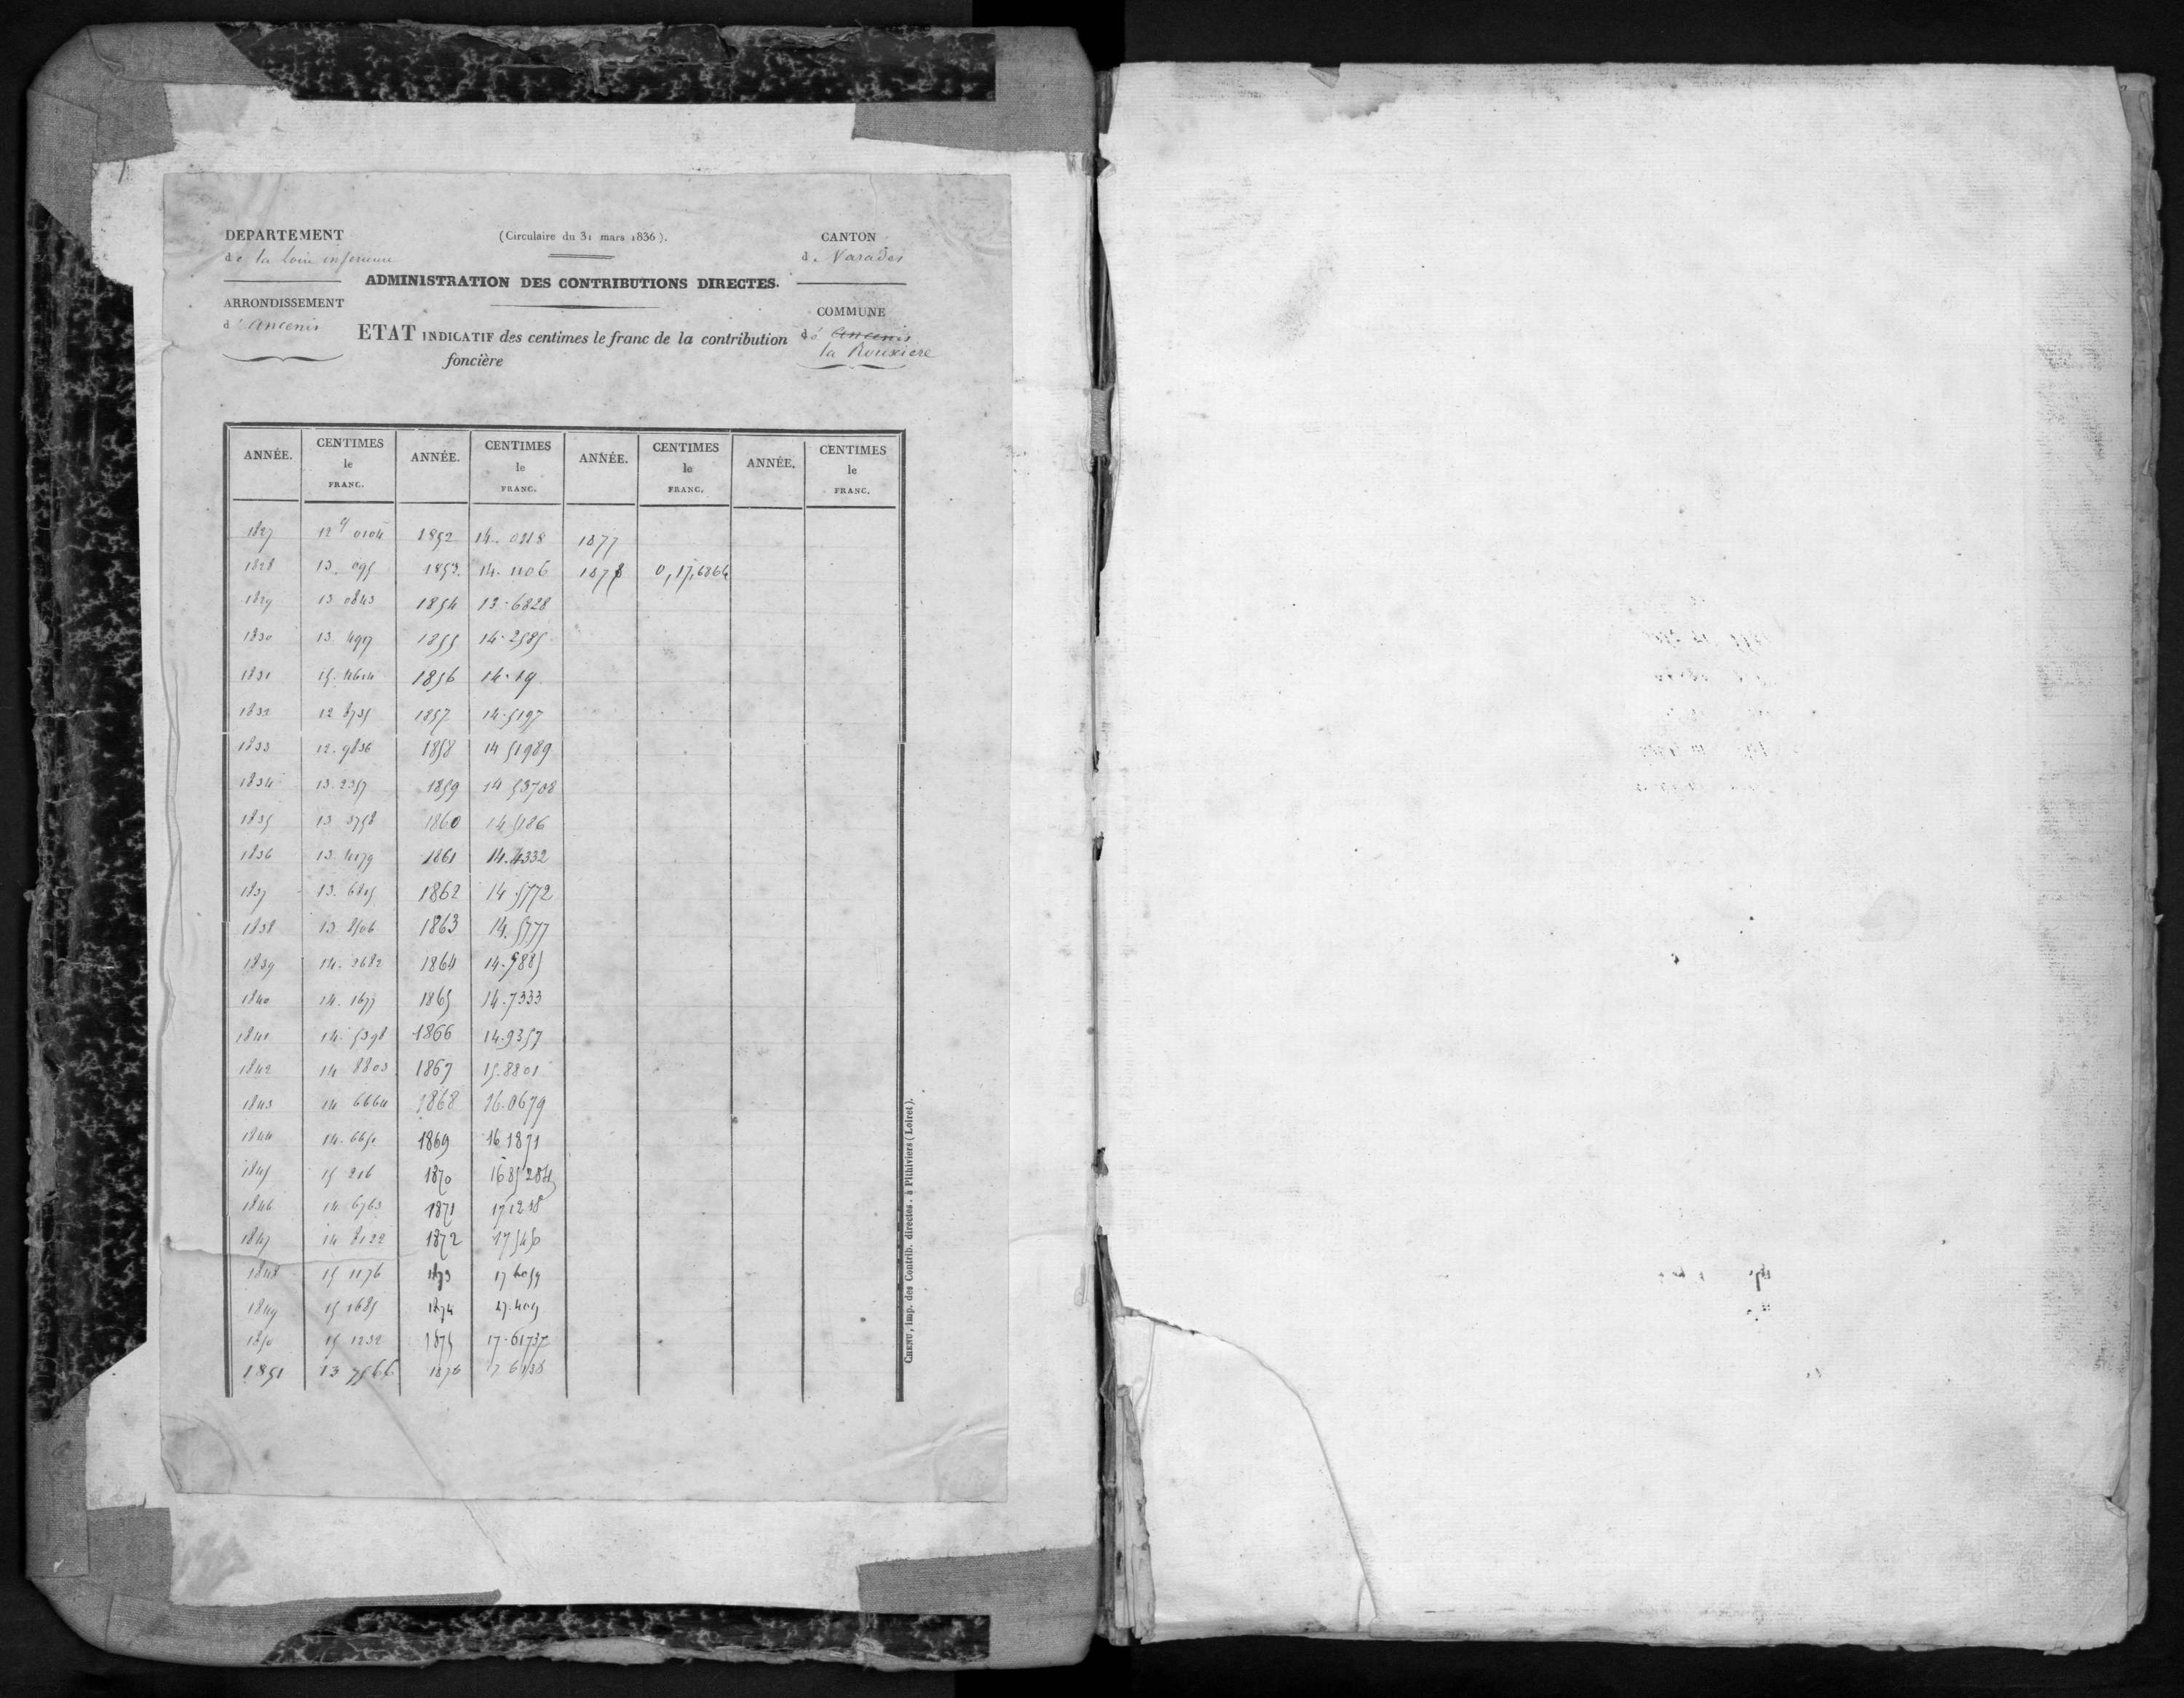 DEPARTEMENT
de la Loire inferieure
(Circulaire du 31 mars 1836).
CANTON
de Varades
ADMINISTRATION DES CONTRIBUTIONS DIRECTES.
ARRONDISSEMENT
d'ancenis
COMMUNE
de ancenis
la Rouxiere
ETAT INDICATIF des centimes le franc de la contribution
foncière
ANNÉE. CENTIMES le FRANC. ANNÉE. CENTIMES le FRANC. ANNÉE. CENTIMES le FRANC. ANNÉE. CENTIMES le FRANC.
1827 12 0104 1852 14. 0218 1877
1828 13. 095 1853. 14. 1106 1878 0,17,6866
1829 13 0843 1854 13-6828
1830 13. 4917 1855 14-2585
1831 15. 4614 1856 14-19
1832 12 8735 1857 14-5197
1833 12. 9836 1858 14 51989
1834 13. 2357 1859 14 53708
1835 13 3758 1860 14 5186
1836 13. 4179 1861 14.4332
1837 13. 6815 1862 14.5772
1838 13. 8506 1863 14.5777
1839 14. 2682 1864 14.5885
1840 14. 1677 1865 14.7333
1841 14. 5398 1866 14.9357
1842 14 8803 1867 15.8801
1843 14 6664 1868 16.0679
1844 14. 6651 1869 16 1871
1845 15 216 1870 16 85284
1846 14. 6763 1871 17 1218
1847 14 8122 1872 17 545
1848 15 1176 1873 17 6059
1849 15 1685 1874 17.409
1850 15 1232 1875 17-61737
1851 13 7566 1876 17 6138
CHENU, imp. des Contrib. directes, à Pithiviers (Loiret).